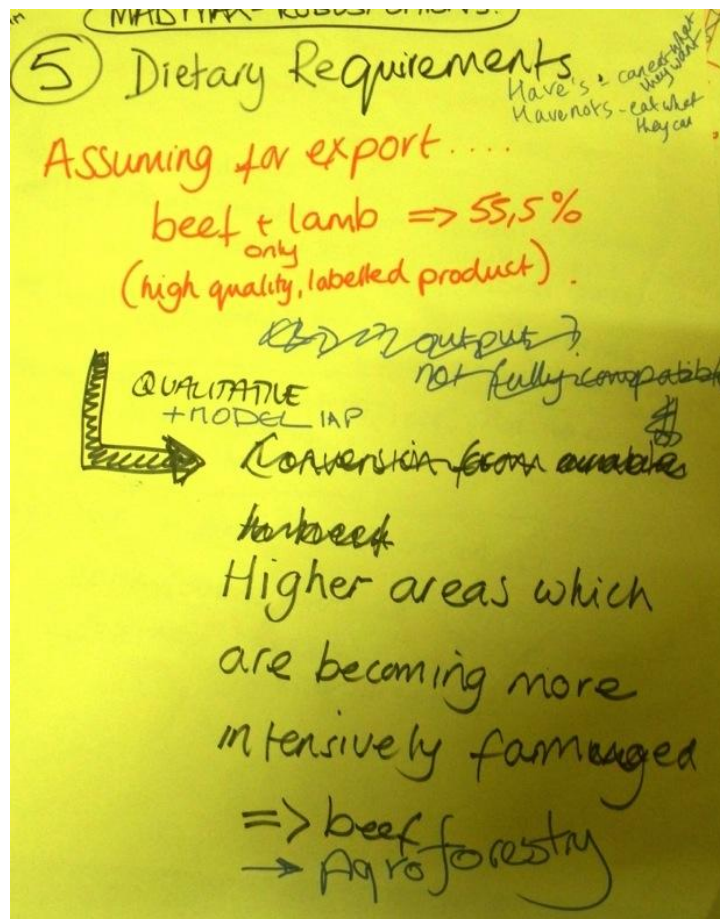 MADMAX - ROBUST
5 Dietary Requirements
Have's : can eat what they want
Havenots - eat what they can
Assuming for export ....
beef + lamb => 55,5%
only
(high quality, labelled product).
output
not fully compatible
QUALITATIVE
+ MODEL IAP
Conversion from arable
to beef
Higher areas which
are becoming more
intensively farmed
=> beef
→ Agroforestry